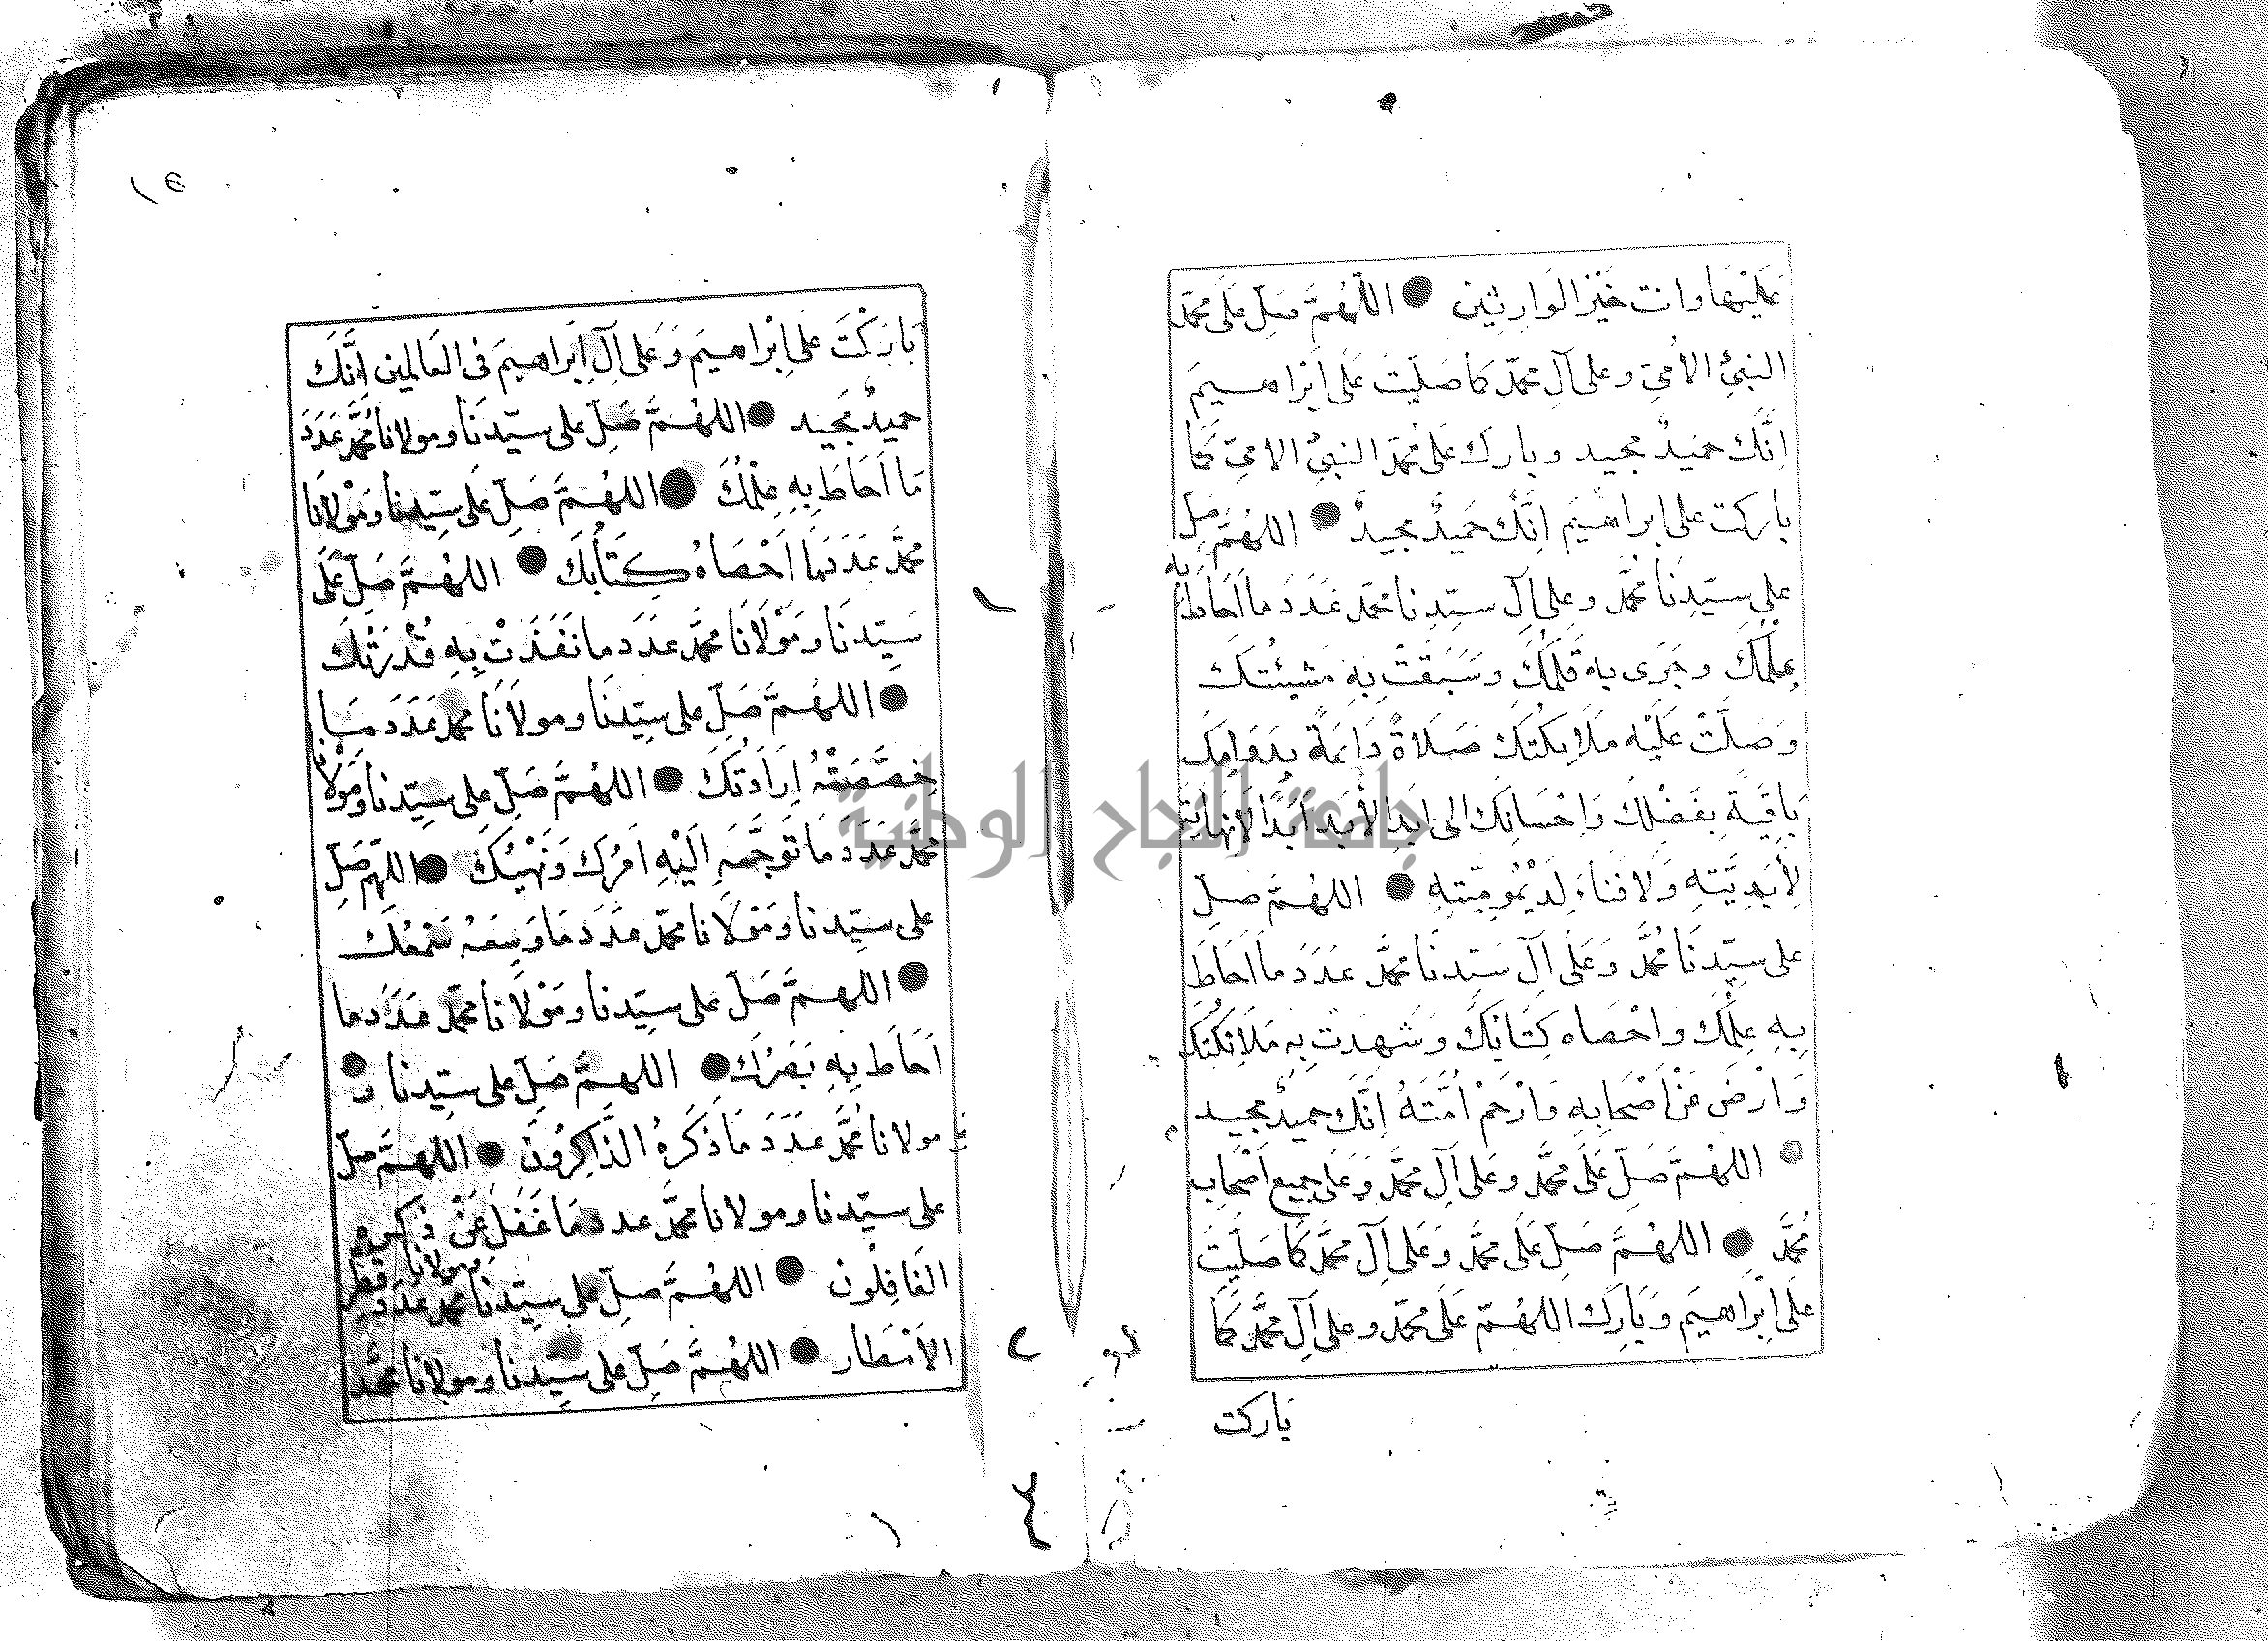 عَليْها وانت خَيْرالوَارثين ● اللّهُمَّ صلِّ عَلَى محمّد
النبيِّ الأميّ وعلى آلِ محمّد كما صَلّيْتَ عَلَى ابْراهيمَ
اِنَّكَ حميْدٌ مجيد وبارك عَلَى مُحمَّد النبيِّ الاميّ كمَا
باركت على ابراهيَم اِنَّكَ حَميْدٌ مجيدٌ ● اللهُمَّ صلِّ
على سيّدِنَا مُحَمَّد وعلى آلِ سيّدِنا محمّد عَدَدَ ما اَحَاطَ به
عِلمُكَ وجَرَى بهِ قَلَمُكَ وسَبَقَتْ بهِ مَشيئتُكَ
وَصَلَّتْ عَلَيْهِ مَلائكتُكَ صَلاةً دَائمَةً بدَوَامِكَ
بَاقِيَةً بِفَضْلِكَ وَاِحْسَانِكَ الى اَبَدِ الأبَدِ اَبَدًا لانِهَايَةَ
لأبَدِيَّتِهِ وَلا فَنَاءَ لِدَيْمُومِيّتِهِ ● اللهُمَّ صلِّ
على سيّدِنَا مُحَمَّد وَعَلَى آلِ سَيّدِنَا محمَّد عَدَدَ ما اَحَاطَ
بِهِ عِلْمُكَ واحْصَاه كِتَابُكَ وَشَهِدَتْ بِهِ مَلائكتُكَ
وَارْضَ عَنْ اَصْحَابِهِ وَارْحَمْ اُمَّتَهُ اِنَّكَ حميدٌ مجيد
● اللهُمَّ صَلِّ عَلَى محمَّد وعَلى آلِ محمَّد وَعَلَى جميعِ اَصْحَابِ
مُحمَّد ● اللهُمَّ صَلِّ عَلَى محمَّد وَعَلى آلِ محمَّد كمَا صَلّيْتَ
عَلَى اِبْرَاهيَم وَبَارِك اللهُمّ عَلَى محمّد وعلى آلِ محمَّد كمَا
بَاركت
١٥
بَارَكْتَ عَلى اِبْراهيمَ وَعَلى آلِ اِبْراهيمَ فى العَالمين اِنَّكَ
حميدٌ مَجيد ● اللهُمَّ صَلِّ على سيّدنَا ومولانا مُحَمَّد عَدَدَ
مَا اَحَاطَ بِهِ عِلْمُكَ ● اللهُمَّ صَلِّ عَلَى سَيّدِنا وَمَوْلانَا
محمَّد عَدَدَ مَا اَحْصَاهُ كِتَابُكَ ● اللهُمَّ صَلِّ عَلَى
سَيّدِنَا وَمَوْلانَا محمَّد عدَدَ ما نَفَذَتْ بِهِ قُدْرَتُكَ
● اللهُمَّ صَلِّ على سيّدِنَا ومولانَا محمّد عَدَدَ مَا
خصَّصَتْهُ اِرَادَتُكَ ● اللهُمَّ صَلِّ على سيّدنا وَمَوْلانَا
محمَّد عَدَدَ مَا تَوَجَّهَ اِلَيْهِ اَمْرُكَ وَنَهْيُكَ ● اللهُمّ صَلِّ
على سيّدنا وَمَوْلانا محمّد عَدَدَ مَا وَسِعَهُ سَمْعُكَ
● اللهمَّ صَلِّ على سيّدنا ومَوْلانا محمّد عَدَدَ ما
اَحَاطَ بِهِ بَصَرُكَ ● اللهمَّ صَلِّ على سيّدنا و ●
مولانا محمَّد عَدَدَ مَا ذَكَرهُ الذَّاكِرُونَ ● اللهمَّ صلِّ
على سيّدنا ومولانا محمَّد عدد مَا غَفَلَ عَنْ ذكرِهِ
الغَافِلُون ● اللهُمَّ صلِّ على سيّدنَا ومولانا محمّد عَدَدَ قطر
الأمْطَار ● اللهُمَّ صَلِّ على سيّدنَا ومولانَا محمَّد
جامعة النجاح الوطنية